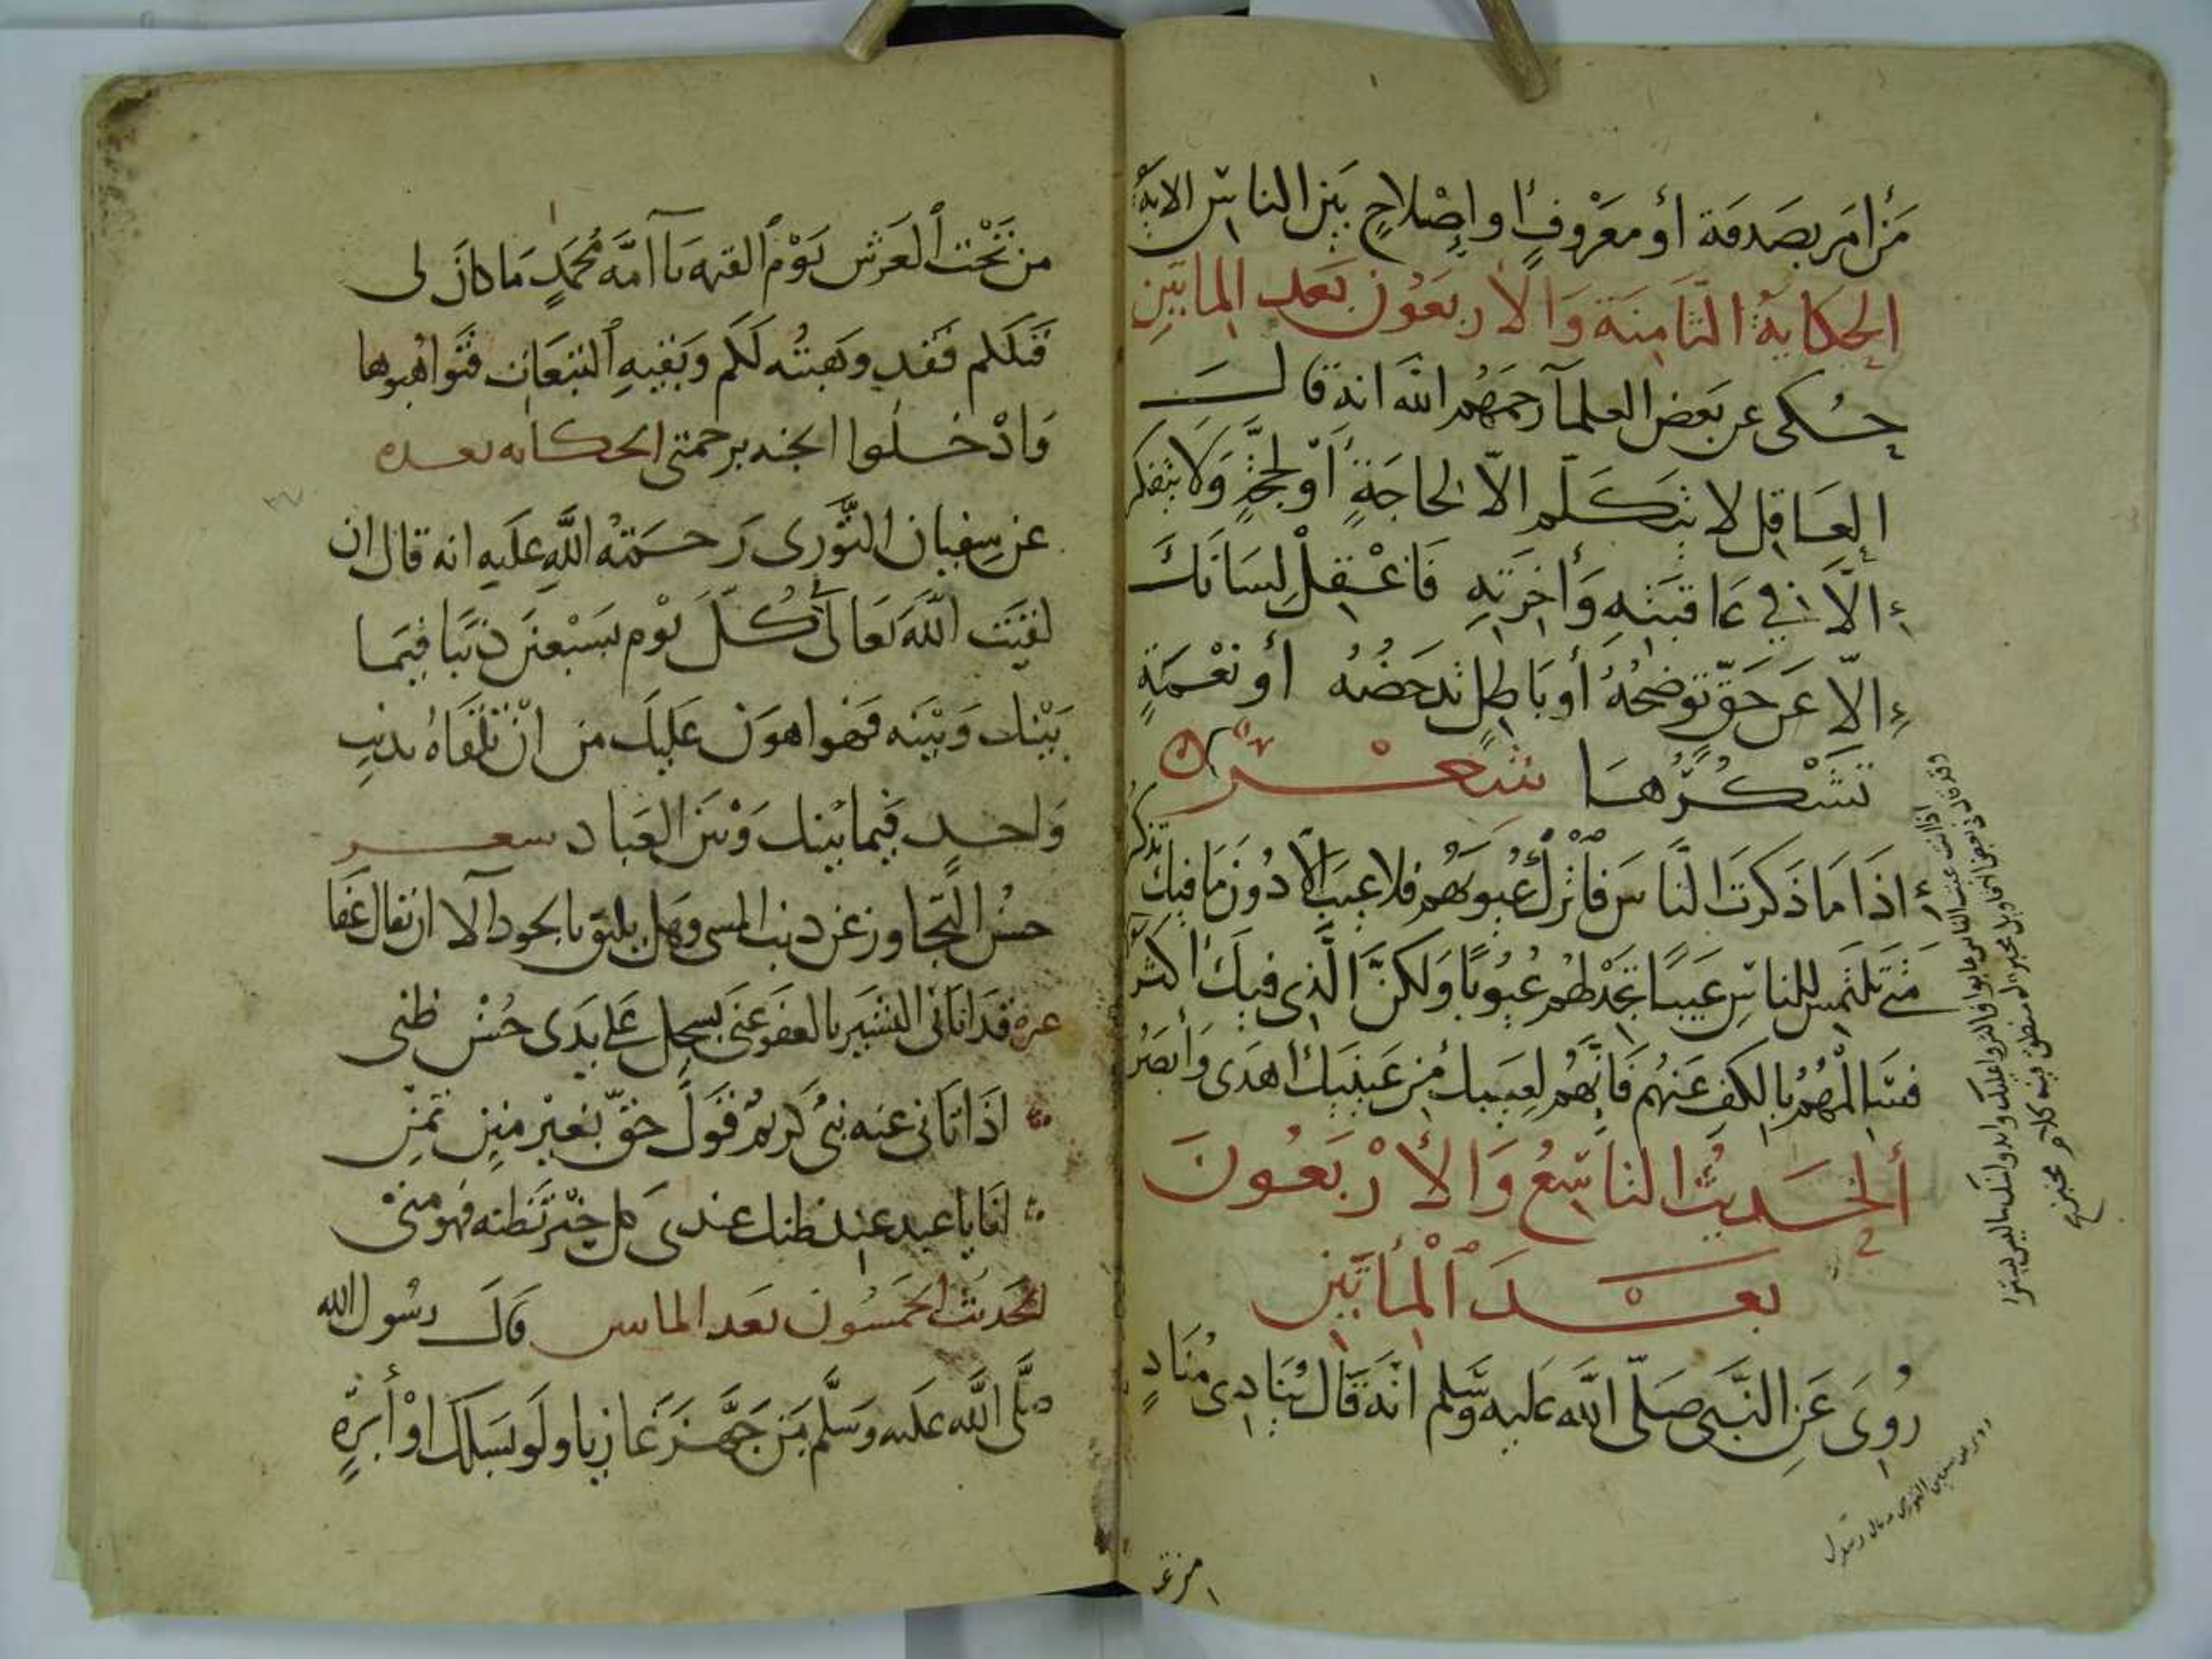 مَن أمَر بصَدقَة أو معرُوفٍ او إصْلاحٍ بَيْن الناسِ الاية
الحِكايَةُ الثَّامِنَة وَالأربَعُون بَعد المِايَتَينِ
حُكى عن بَعض العلمآ رحمَهُم الله انه قال
العَاقِل لا يتكلم الاّ لحاجَةٍ أو لحجَّةٍ وَلا يتفكر
إلاَّ في عَاقبَتِهِ وَأخِرَتِهِ فَاعْقِلْ لِسَانَكَ
إلاّ عَن حَقٍّ تُوَضِحُهُ أو بَاطِلٍ تدحَضُهُ أو نعْمَةٍ
تَشْكُرُهَا شِعْر
اذَا مَا ذَكرتَ النَّاسَ فأترُك عُيُوبَهُم فلا عيبَ الاّ دُونَ مَا فيكَ تذكر
متى تلتمس للناسِ عَيبًا تجدْ لهُم عُيُوبًا وَلكنّ الّذِى فيكَ أكثر
فسَالِمْهُمُ بالكف عَنهُم فَإنَّهُم لِعيبك من عَينَيكَ أهدَى وَأبصَرُ
ألحَديثُ التاسِعُ وَالأرْبَعُونَ
بعْدَ ٱلْمأتَيْن
رُوِىَ عَنِ النَّبَى صَلّى الله عَليه وَسَّلم انَّهُ قَال يُنادِى مُنَادٍ
من تَحْت ٱلعَرْش يَوْم ٱلقيمة يا امَّة مُحَمَدٍ مَا كانَ لى
قبَلكم فَقد وهَبْتُه لَكم وَبَقيه ٱلتبعَات فتَواهبوها
وَادْخلُوا الجنه برحمتى الحكايه بعده
عن سفيان الثَّورى رَحمَتُه اللَّهِ عَليه انه قال ان
لقيْت اللَّه تعَالى كُلّ يَوْم بسَبْعين ذنبًا فيمَا
بَيْنك وَبَيْنَه فهُوا هون عَليكَ من انْ تلقاهُ بذنبٍ
وَاحدٍ فيما بينك وَبَين العبَاد شعر
حسْن التّجاوز عَن ذنب المسى وهَل يليق بالجود الا ان يقال عَفا
غيره قَد اتانى البشير بالعفو عَنى بسجل على يَدى حُسْن ظنى
اذَا اتانى عنه نبىٌ كريمٌ قَولَ حَقٍّ بغَيْر مَين تمنّ
انا يا عبد عند ظنك عندى كل خَيْر تظنه فهو منى
الحَديثُ الخمسُون بَعد المايتين قال رسُول الله
صلَّى اللَّه عَليه وَسَلَّم مَن جَهَّز غَازيا ولَو بسلك اوْ أبرةٍ